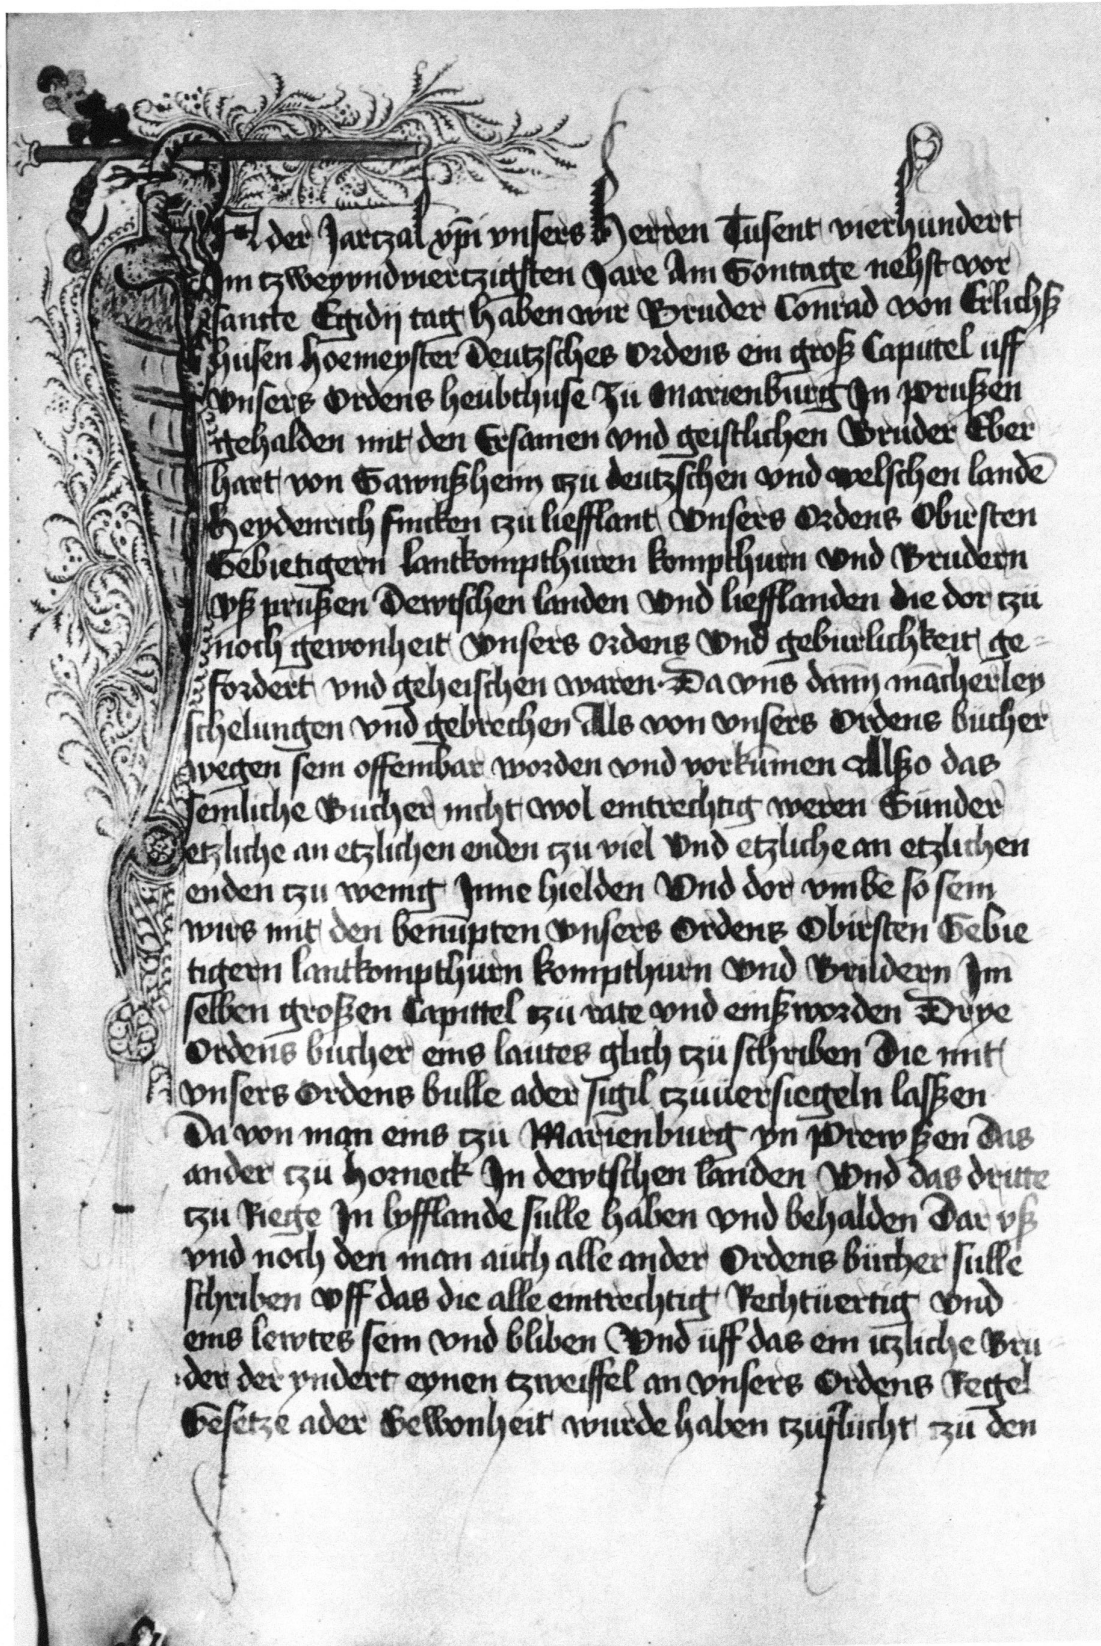 In der Jarczal xp̄i vnsers Herren Tusent vierhundert
Im tzweyvndviertzigsten Jare Am Sontage nehst vor
sancte Egidij tag haben wir Bruder Conrad von Erlichß
husen hoemeyster Deutzsches Ordens ein groß Capitel uff
vnsers Ordens heubthuse zu Marienburg In Prußen
gehalden mit den Ersamen vnd geistlichen Bruder Eber
hart von Sawnßheim tzu deutzschen vnd welschen landē
Heydenrich fincken tzu liefflant vnsers Ordens Obirsten
Gebietigern lantkompthuren kompthurn vnd Brudern
vß prußen Dewtschen landen vnd liefflanden die dor tzu
noch gewonheit vnsers ordens vnd geburlichkeit ge-
fordert vnd geheischen waren. Da vns dann mācherley
schelungen vnd gebrechen Als von vnsers Ordens bucher
wegen sein offembar worden vnd vorkumen Alßo das
semliche Bucher nicht wol eintrechtig weren Sunder
etzliche an etzlichen enden tzu viel vnd etzliche an etzlichen
enden tzu wenig Inne hielden Vnd dor vmbe so sein
wirs mit den benūpten vnsers Ordens Obirsten Gebie
tigern lantkompthurn kompthurn vnd Brudern Im
selben großen Capittel tzu rate vnd einß worden Drye
Ordens bucher eins lautes glich tzu schriben Die mit
vnsers Ordens bulle ader sigil tzuuersiegeln laßen
Da von man eins tzu Marienburg yn Prewßen Das
ander tzu horneck In dewtschen landen Vnd das dritte
tzu Riege In lyfflande sulle haben vnd behalden Dar vß
vnd noch den man auch alle ander Ordens bucher sulle
schriben vff das die alle eintrechtig Rechtuertig vnd
eins lewtes sein vnd bliben Vnd uff das ein itzliche Bru
der der yndert eynen tzweiffel an vnsers Ordens Regel
Gesetze ader Gewonheit wurde haben tzuflucht tzu den